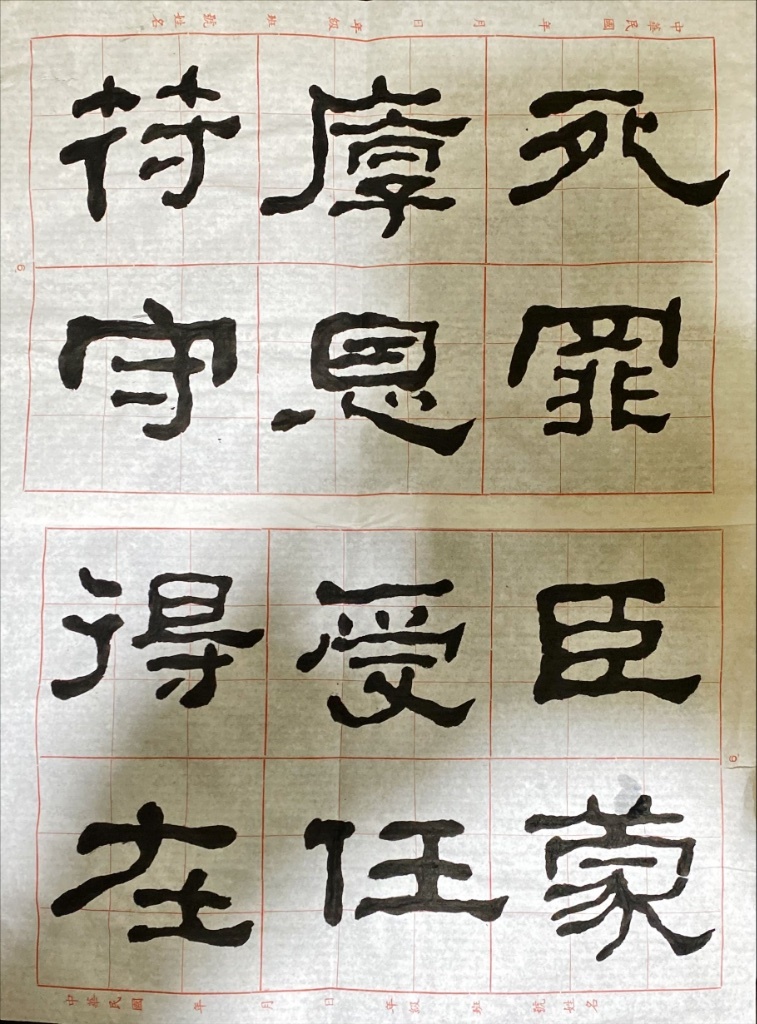 中華民國 年 月 日 年級 班 號 姓名
死罪臣蒙
厚恩受任
符守得在
中華民國 年 月 日 年級 班 號 姓名